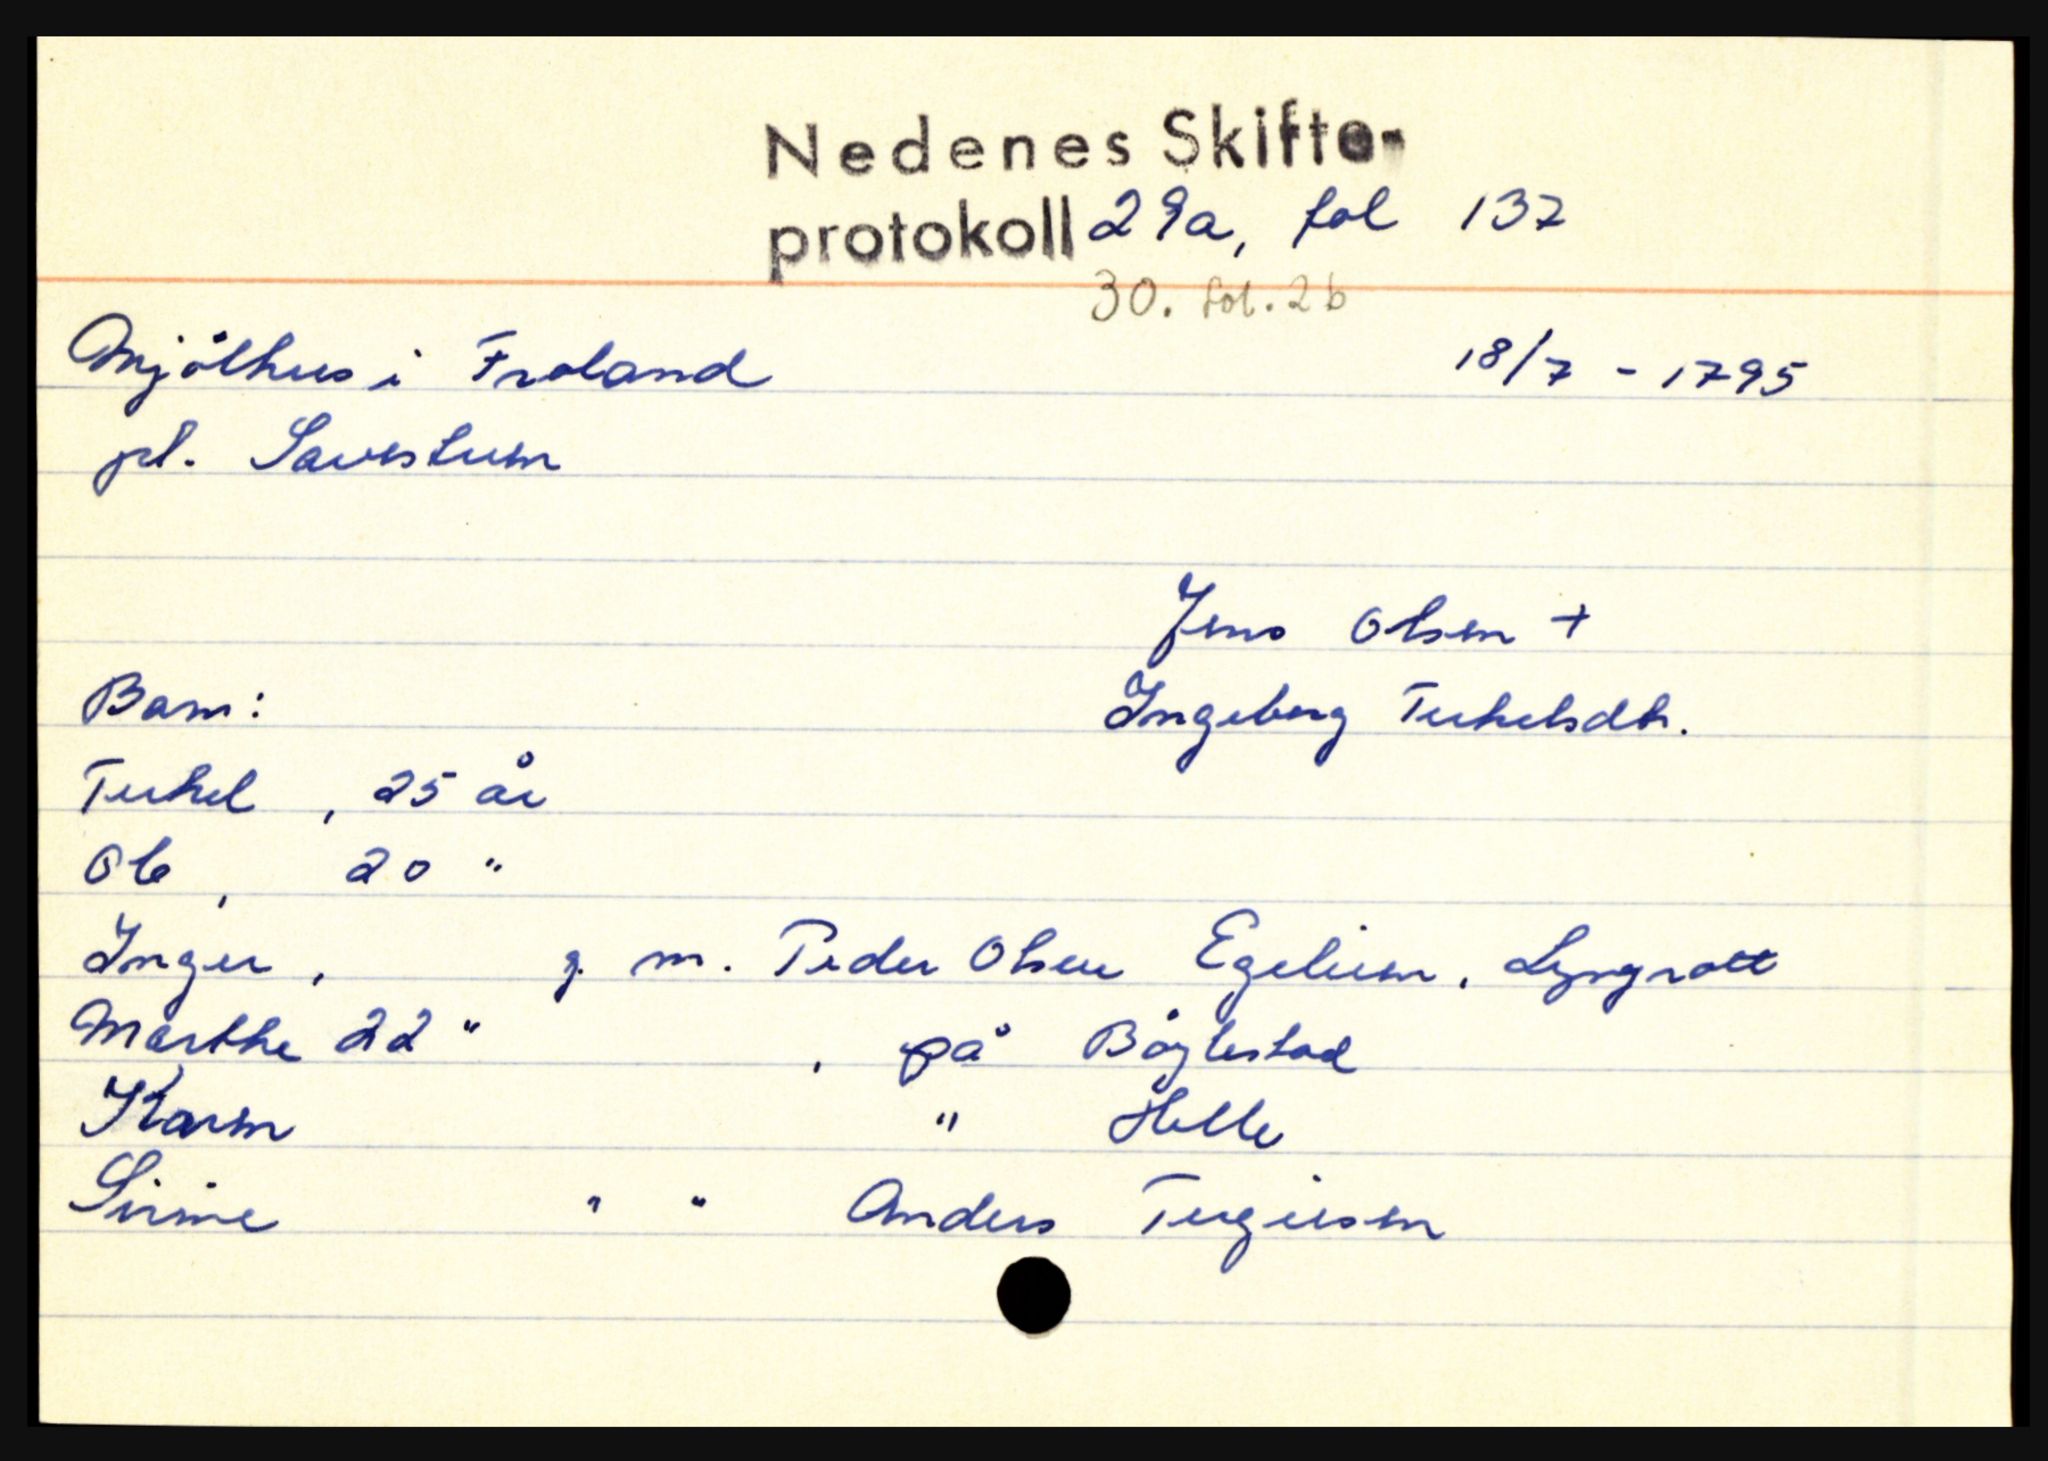 Nedenes Skifte-
protokoll 29a, fol 137
30. fol. 2b
Mjölhus i Froland 18/7 - 1795
pl. Savestuen
Jens Olsen +
Barn: Ingeborg Terkelsdtr.
Terkel, 25 år
Ole, 20 "
Inger, g. m. Peder Olsen Egelien, Lyngrott
Marthe 22 " , på Böylestad
Karen " Helle
Sirine " " Anders Tergiesen